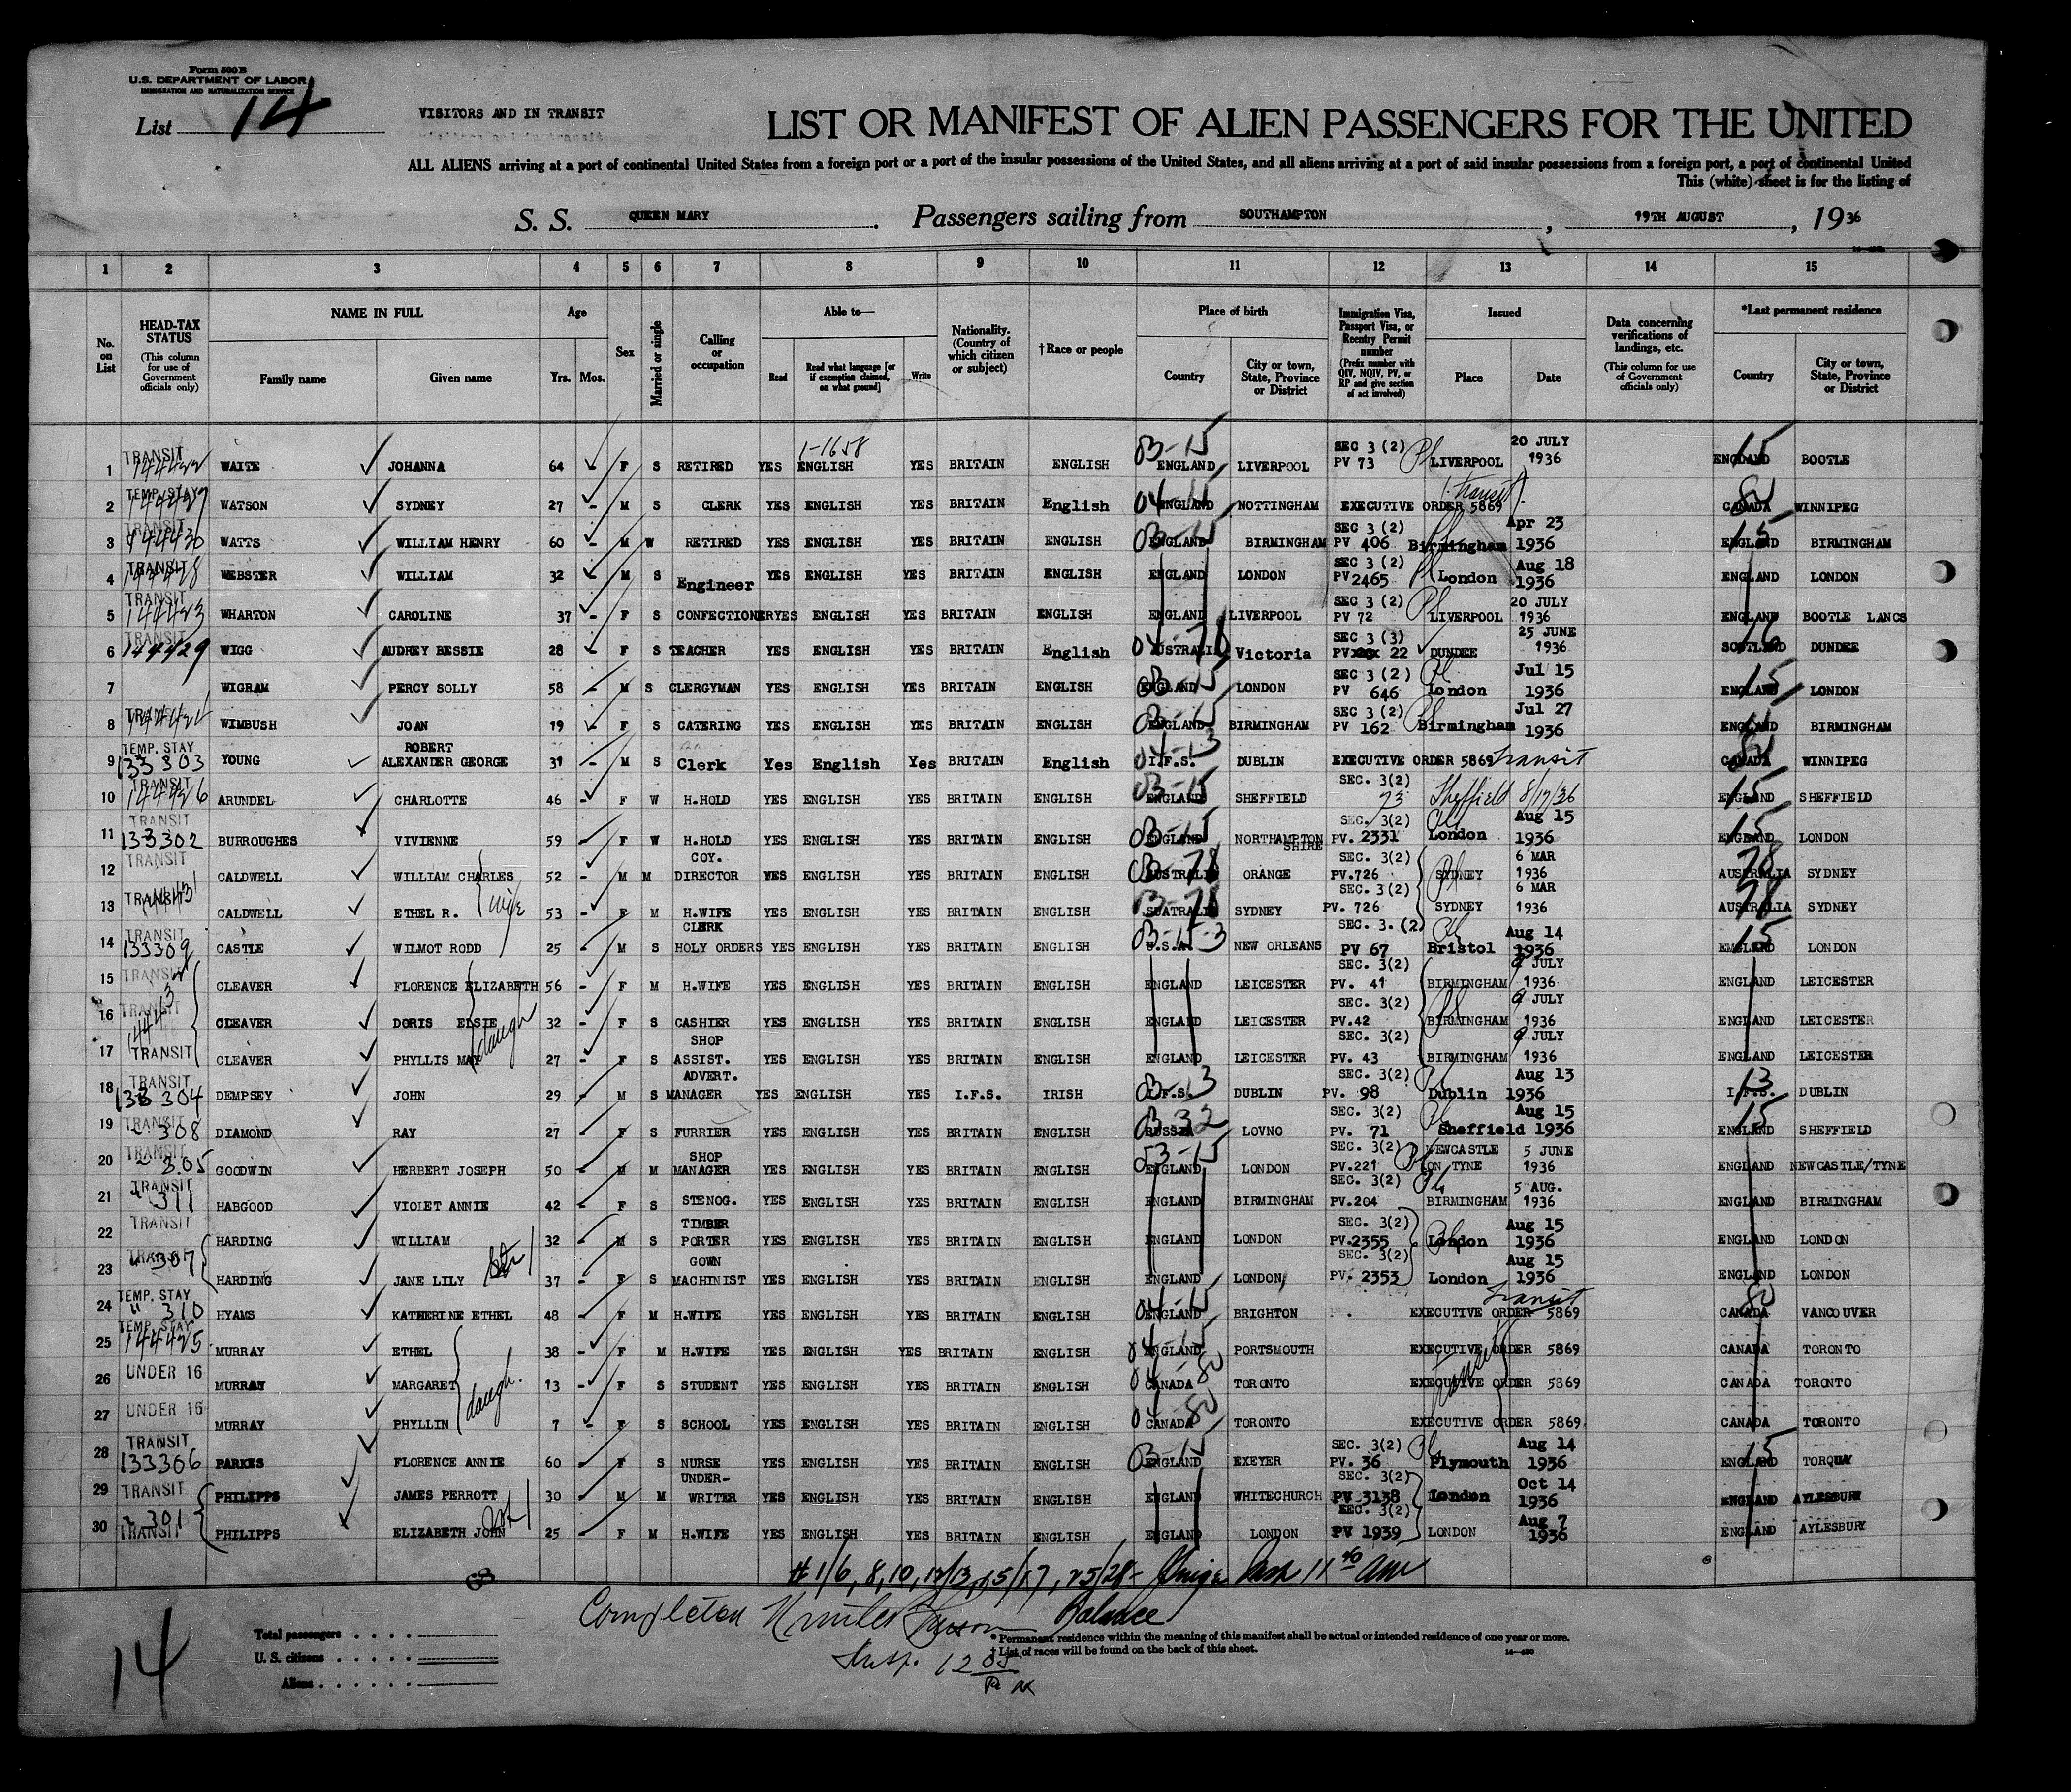 Form 500 B
U.S. DEPARTMENT OF LABOR
IMMIGRATION AND NATURALIZATION SERVICE
List 14
VISITORS AND IN TRANSIT
LIST OR MANIFEST OF ALIEN PASSENGERS FOR THE UNITED
ALL ALIENS arriving at a port of continental United States from a foreign port or a port of the insular possessions of the United States, and all aliens arriving at a port of said insular possessions from a foreign port, a port of continental United
This (white) sheet is for the listing of
S. S. QUEEN MARY. Passengers sailing from SOUTHAMPTON, 19TH AUGUST, 1936
1 2 3 4 5 6 7 8 9 10 11 12 13 14 15
No. on List
HEAD-TAX STATUS (This column for use of Government officials only)
NAME IN FULL Family name Given name
Age Yrs. Mos.
Sex
Married or single
Calling or occupation
Able to— Read Read what language [or if exemption claimed, on what ground] Write
Nationality. (Country of which citizen or subject)
† Race or people
Place of birth Country City or town, State, Province or District
Immigration Visa, Passport Visa, or Reentry Permit number (Prefix number with QIV, NQIV, PV, or RP and give section of act involved)
Issued Place Date
Data concerning verifications of landings, etc. (This column for use of Government officials only)
*Last permanent residence Country City or town, State, Province or District
1-1658
1 TRANSIT WAITE JOHANNA 64 F S RETIRED YES ENGLISH YES BRITAIN ENGLISH 03-15 ENGLAND LIVERPOOL SEC 3 (2) PV 73 LIVERPOOL 20 JULY 1936 15 ENGLAND BOOTLE
2 TEMP. STAY 144427 WATSON SYDNEY 27 - M S CLERK YES ENGLISH YES BRITAIN English 04-15 ENGLAND NOTTINGHAM EXECUTIVE ORDER 5869 transit 80 CANADA WINNIPEG
3 TRANSIT 144430 WATTS WILLIAM HENRY 60 - M W RETIRED YES ENGLISH YES BRITAIN ENGLISH 03-15 ENGLAND BIRMINGHAM SEC 3 (2) PV 406 Birmingham Apr 23 1936 15 ENGLAND BIRMINGHAM
4 TRANSIT 144428 WEBSTER WILLIAM 32 M S Engineer YES ENGLISH YES BRITAIN ENGLISH ENGLAND LONDON SEC 3 (2) PV 2465 London Aug 18 1936 ENGLAND LONDON
5 TRANSIT 144423 WHARTON CAROLINE 37 - F S CONFECTIONER YES ENGLISH YES BRITAIN ENGLISH ENGLAND LIVERPOOL SEC 3 (2) PV 72 LIVERPOOL 20 JULY 1936 ENGLAND BOOTLE LANCS
6 TRANSIT 144429 WIGG AUDREY BESSIE 28 F S TEACHER YES ENGLISH YES BRITAIN English AUSTRALIA Victoria SEC 3 (3) PV 22 DUNDEE 25 JUNE 1936 SCOTLAND DUNDEE
7 WIGRAM PERCY SOLLY 58 - M S CLERGYMAN YES ENGLISH YES BRITAIN ENGLISH 03-15 ENGLAND LONDON SEC 3 (2) PV 646 London Jul 15 1936 15 ENGLAND LONDON
8 TRANSIT 144424 WIMBUSH JOAN 19 F S CATERING YES ENGLISH YES BRITAIN ENGLISH 03-15 ENGLAND BIRMINGHAM SEC 3 (2) PV 162 Birmingham Jul 27 1936 ENGLAND BIRMINGHAM
9 TEMP. STAY 133303 YOUNG ROBERT ALEXANDER GEORGE 31 - M S Clerk Yes English Yes BRITAIN English 04-13 I.F.S. DUBLIN EXECUTIVE ORDER 5869 transit 80 CANADA WINNIPEG
10 TRANSIT 144426 ARUNDEL CHARLOTTE 46 - F W H.HOLD YES ENGLISH YES BRITAIN ENGLISH 03-15 ENGLAND SHEFFIELD SEC. 3(2) 73 Sheffield 8/17/36 15 ENGLAND SHEFFIELD
11 TRANSIT 133302 BURROUGHES VIVIENNE 59 F W H.HOLD YES ENGLISH YES BRITAIN ENGLISH 03-15 ENGLAND NORTHAMPTON SHIRE SEC. 3(2) PV. 2331 London Aug 15 1936 15 ENGLAND LONDON
12 TRANSIT CALDWELL WILLIAM CHARLES 52 - M M COY. DIRECTOR YES ENGLISH YES BRITAIN ENGLISH 03-78 AUSTRALIA ORANGE SEC. 3(2) PV.726 SYDNEY 6 MAR 1936 78 AUSTRALIA SYDNEY
13 TRANSIT CALDWELL ETHEL R. wife 53 - F M H.WIFE YES ENGLISH YES BRITAIN ENGLISH 03-78 SUATRALIA SYDNEY SEC. 3(2) PV. 726 SYDNEY 6 MAR 1936 78 AUSTRALIA SYDNEY
14 TRANSIT 133309 CASTLE WILMOT RODD 25 M S CLERK HOLY ORDERS YES ENGLISH YES BRITAIN ENGLISH U.S.A. NEW ORLEANS SEC. 3. (2) PV 67 Bristol Aug 14 1936 15 ENGLAND LONDON
15 TRANSIT CLEAVER FLORENCE ELIZABETH 56 - F M H.WIFE YES ENGLISH YES BRITAIN ENGLISH ENGLAND LEICESTER SEC. 3(2) PV. 41 BIRMINGHAM 9 JULY 1936 ENGLAND LEICESTER
16 TRANSIT CLEAVER DORIS ELSIE daugh 32 - F S CASHIER YES ENGLISH YES BRITAIN ENGLISH ENGLAND LEICESTER SEC. 3(2) PV.42 BIRMINGHAM 9 JULY 1936 ENGLAND LEICESTER
17 TRANSIT CLEAVER PHYLLIS MAY 27 - F S SHOP ASSIST. YES ENGLISH YES BRITAIN ENGLISH ENGLAND LEICESTER SEC. 3(2) PV. 43 BIRMINGHAM 9 JULY 1936 ENGLAND LEICESTER
18 TRANSIT 133304 DEMPSEY JOHN 29 M S ADVERT. MANAGER YES ENGLISH YES I.F.S. IRISH 03-13 I.F.S. DUBLIN SEC. 3(2) PV. 98 Dublin Aug 13 1936 13 I.F.S. DUBLIN
19 TRANSIT " 308 DIAMOND RAY 27 F S FURRIER YES ENGLISH YES BRITAIN ENGLISH 03-32 RUSSIA LOVNO SEC. 3(2) PV. 71 Sheffield Aug 15 1936 15 ENGLAND SHEFFIELD
20 TRANSIT " 305 GOODWIN HERBERT JOSEPH 50 M M SHOP MANAGER YES ENGLISH YES BRITAIN ENGLISH 03-15 ENGLAND LONDON SEC. 3(2) PV.221 NEWCASTLE ON TYNE 5 JUNE 1936 ENGLAND NEWCASTLE/TYNE
21 TRANSIT " 311 HABGOOD VIOLET ANNIE 42 F S STENOG. YES ENGLISH YES BRITAIN ENGLISH ENGLAND BIRMINGHAM SEC. 3(2) PV.204 BIRMINGHAM 5 AUG. 1936 ENGLAND BIRMINGHAM
22 TRANSIT HARDING WILLIAM 32 M S TIMBER PORTER YES ENGLISH YES BRITAIN ENGLISH ENGLAND LONDON SEC. 3(2) PV.2355 London Aug 15 1936 ENGLAND LONDON
23 TRANSIT " 307 HARDING JANE LILY 37 F S GOWN MACHINIST YES ENGLISH YES BRITAIN ENGLISH ENGLAND LONDON SEC. 3(2) PV. 2353 London Aug 15 1936 ENGLAND LONDON
24 TEMP. STAY " 310 HYAMS KATHERINE ETHEL 48 F M H.WIFE YES ENGLISH YES BRITAIN ENGLISH 04-15 ENGLAND BRIGHTON EXECUTIVE ORDER 5869 transit 80 CANADA VANCOUVER
25 TEMP. STAY 144425 MURRAY ETHEL 38 - F M H.WIFE YES ENGLISH YES BRITAIN ENGLISH 04-15 ENGLAND PORTSMOUTH EXECUTIVE ORDER 5869 CANADA TORONTO
26 UNDER 16 MURRAY MARGARET daugh. 13 - F S STUDENT YES ENGLISH YES BRITAIN ENGLISH 04-80 CANADA TORONTO EXECUTIVE ORDER 5869 transit CANADA TORONTO
27 UNDER 16 MURRAY PHYLLIN 7 - F S SCHOOL YES ENGLISH YES BRITAIN ENGLISH 04-80 CANADA TORONTO EXECUTIVE ORDER 5869 CANADA TORONTO
28 TRANSIT 133306 PARKES FLORENCE ANNIE 60 F S NURSE YES ENGLISH YES BRITAIN ENGLISH 03-15 ENGLAND EXEYER SEC. 3(2) PV. 36 Plymouth Aug 14 1936 15 ENGLAND TORQUAY
29 TRANSIT PHILIPPS JAMES PERROTT 30 M M UNDER-WRITER YES ENGLISH YES BRITAIN ENGLISH ENGLAND WHITECHURCH SEC. 3(2) PV 3138 London Oct 14 1936 ENGLAND AYLESBURY
30 " 301 TRANSIT PHILIPPS ELIZABETH JOHN 25 F M H.WIFE YES ENGLISH YES BRITAIN ENGLISH ENGLAND LONDON SEC. 3(2) PV 1939 LONDON Aug 7 1936 ENGLAND AYLESBURY
# 1/6, 8, 10, 12/13, 15/17, 25/28-
Balance
14
Total passengers
U. S. citizens
Aliens
* Permanent residence within the meaning of this manifest shall be actual or intended residence of one year or more.
† List of races will be found on the back of this sheet.